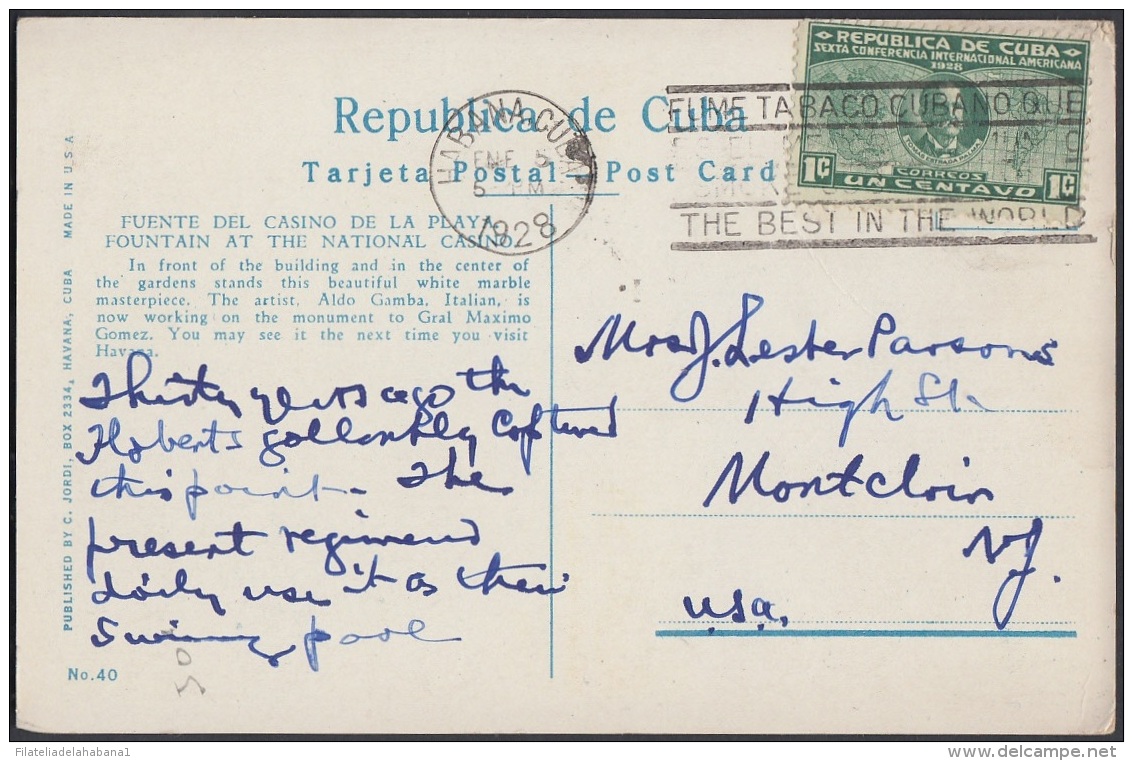 REPUBLICA DE CUBA
SEXTA CONFERENCIA INTERNACIONAL AMERICANA
1928
1¢ CORREOS 1¢
UN CENTAVO
FUME TABACO CUBANO QUE
ES EL
SMOKE
THE BEST IN THE WORLD
HABANA, CUBA
ENE 5
5 PM
1928
Republica de Cuba
Tarjeta Postal — Post Card
FUENTE DEL CASINO DE LA PLAYA
FOUNTAIN AT THE NATIONAL CASINO.
In front of the building and in the center of
the gardens stands this beautiful white marble
masterpiece. The artist, Aldo Gamba, Italian, is
now working on the monument to Gral Maximo
Gomez. You may see it the next time you visit
Havana.
Thirty years ago the
Hoberts gallantly captured
this point. The
present regiment
daily use it as their
Swimming pool
Mrs J. Lester Parsons
High St.
Montclair
NJ.
U.S.A.
PUBLISHED BY C. JORDI, BOX 2334, HAVANA, CUBA MADE IN U.S.A
No. 40
50
Filateliadelahabana1
www.delcampe.net